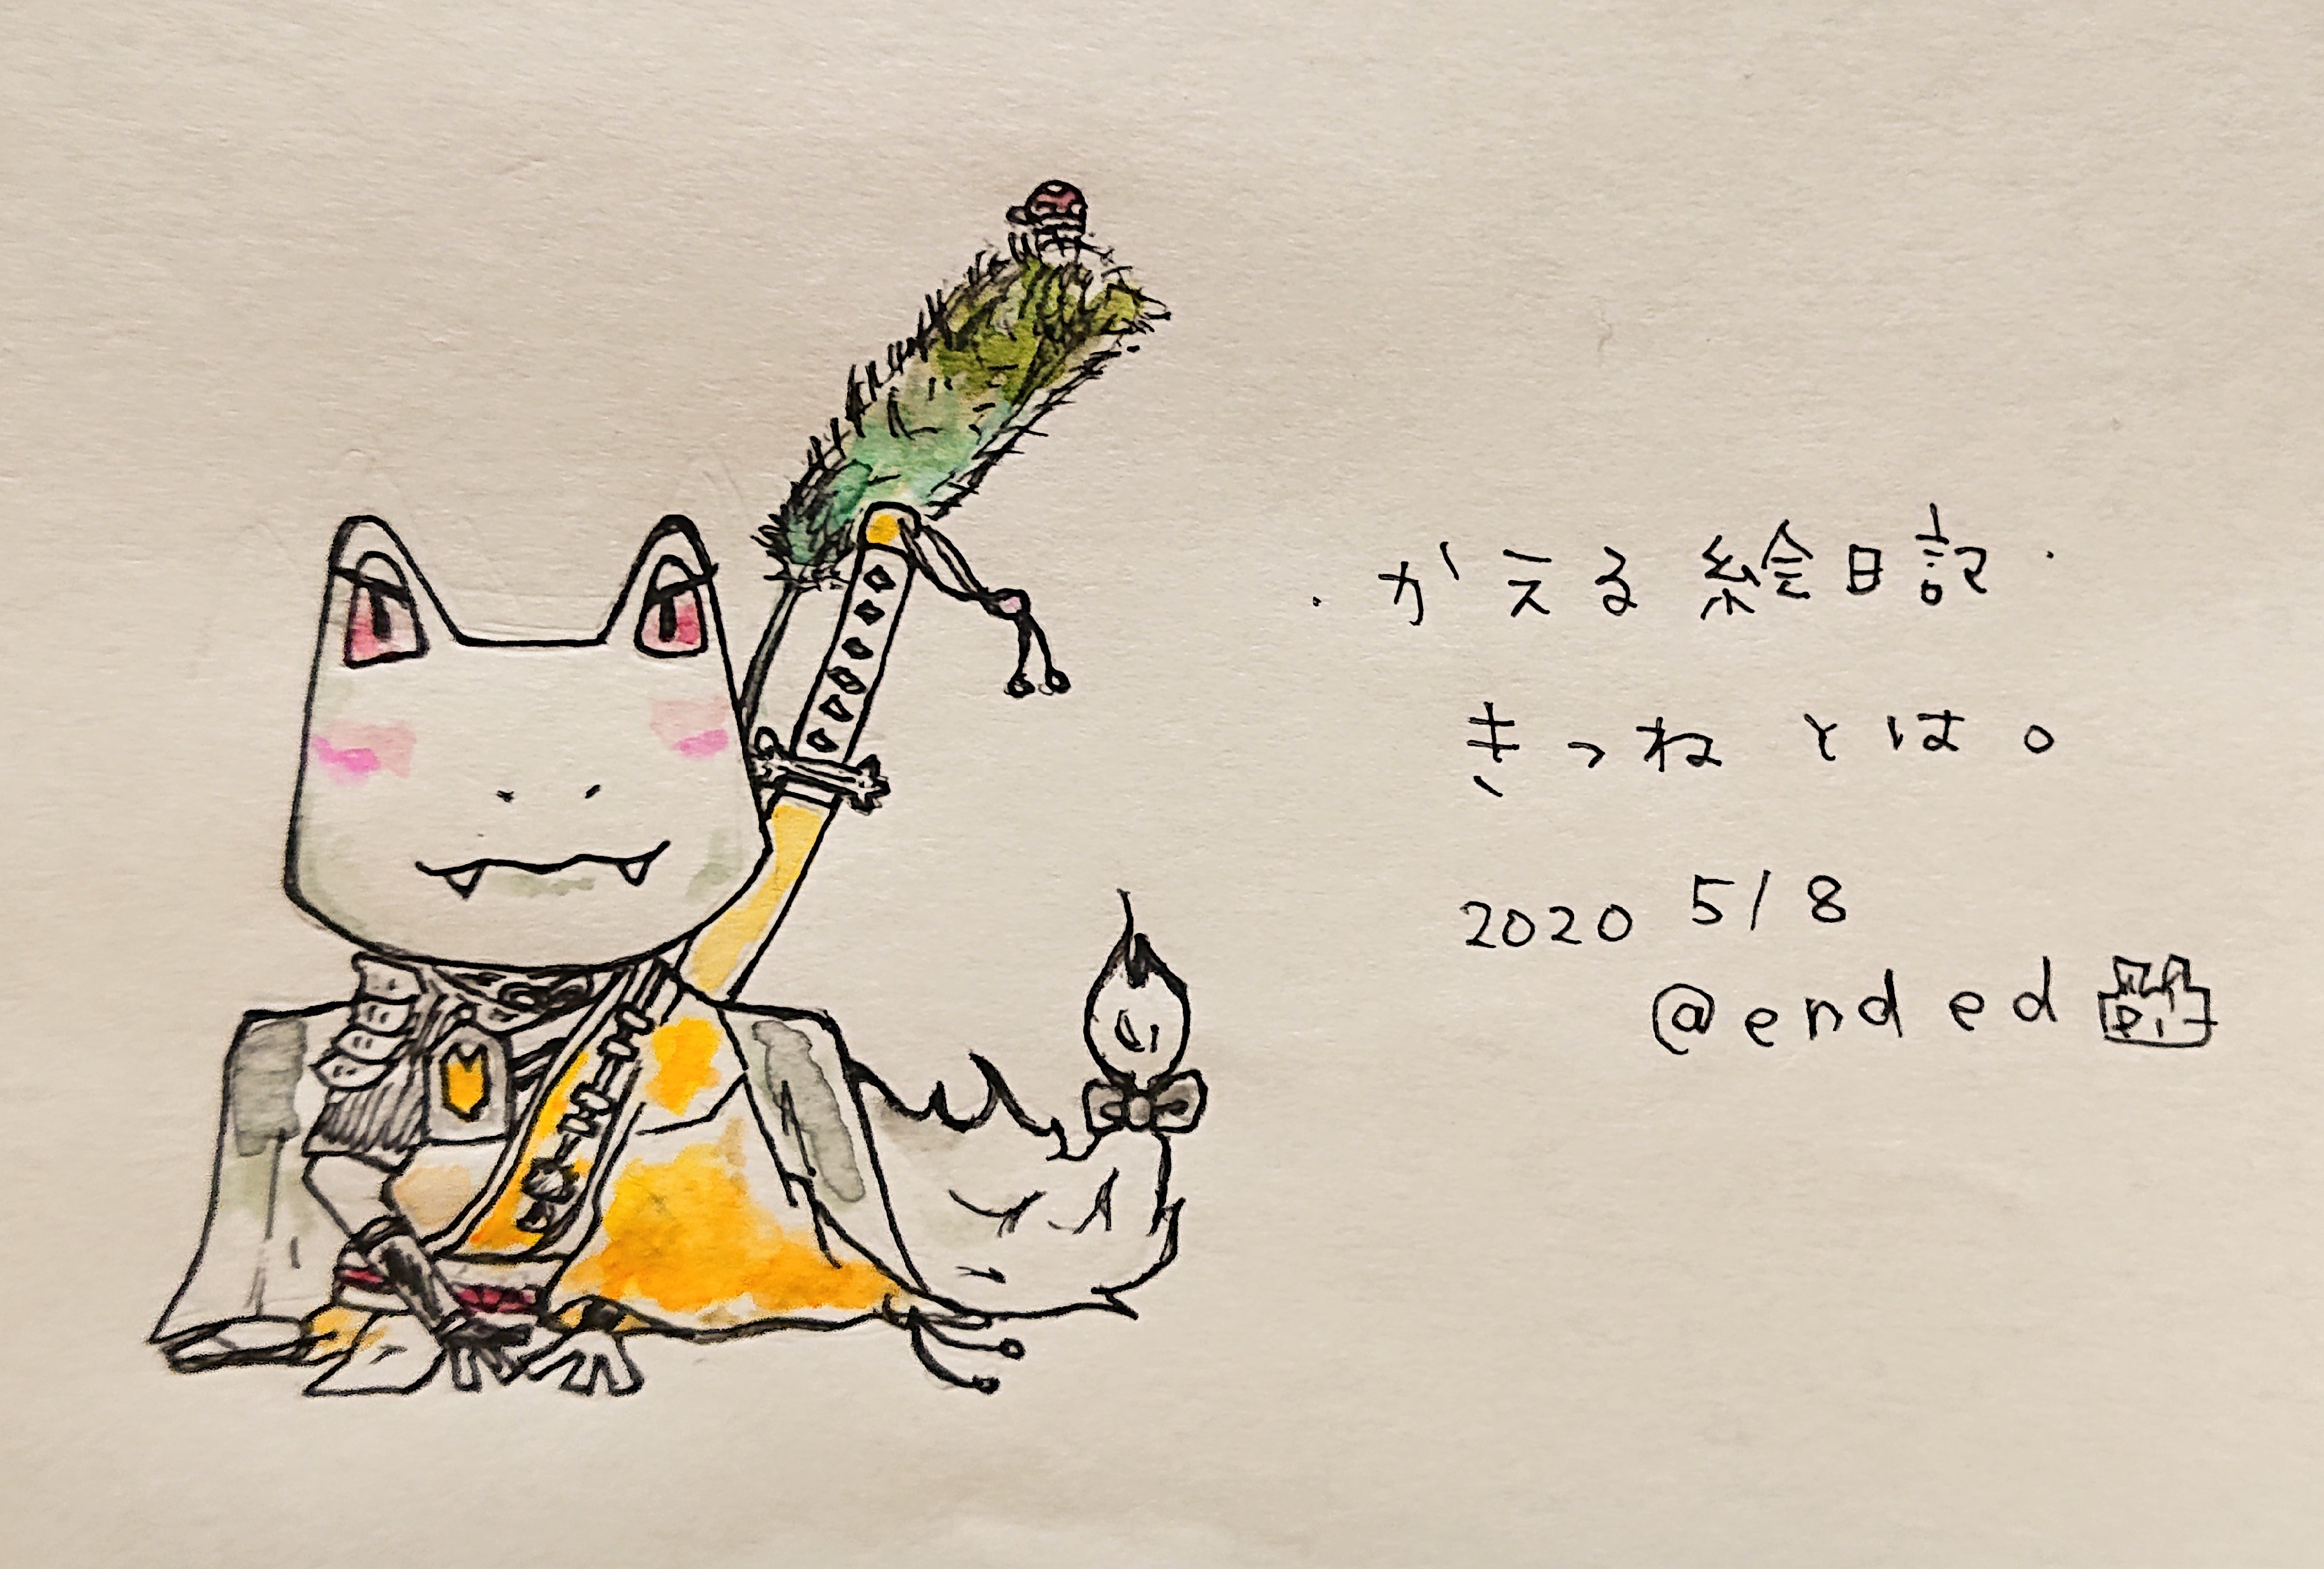 ・かえる絵日記・
きつねとは。
2020 5/8
@ended